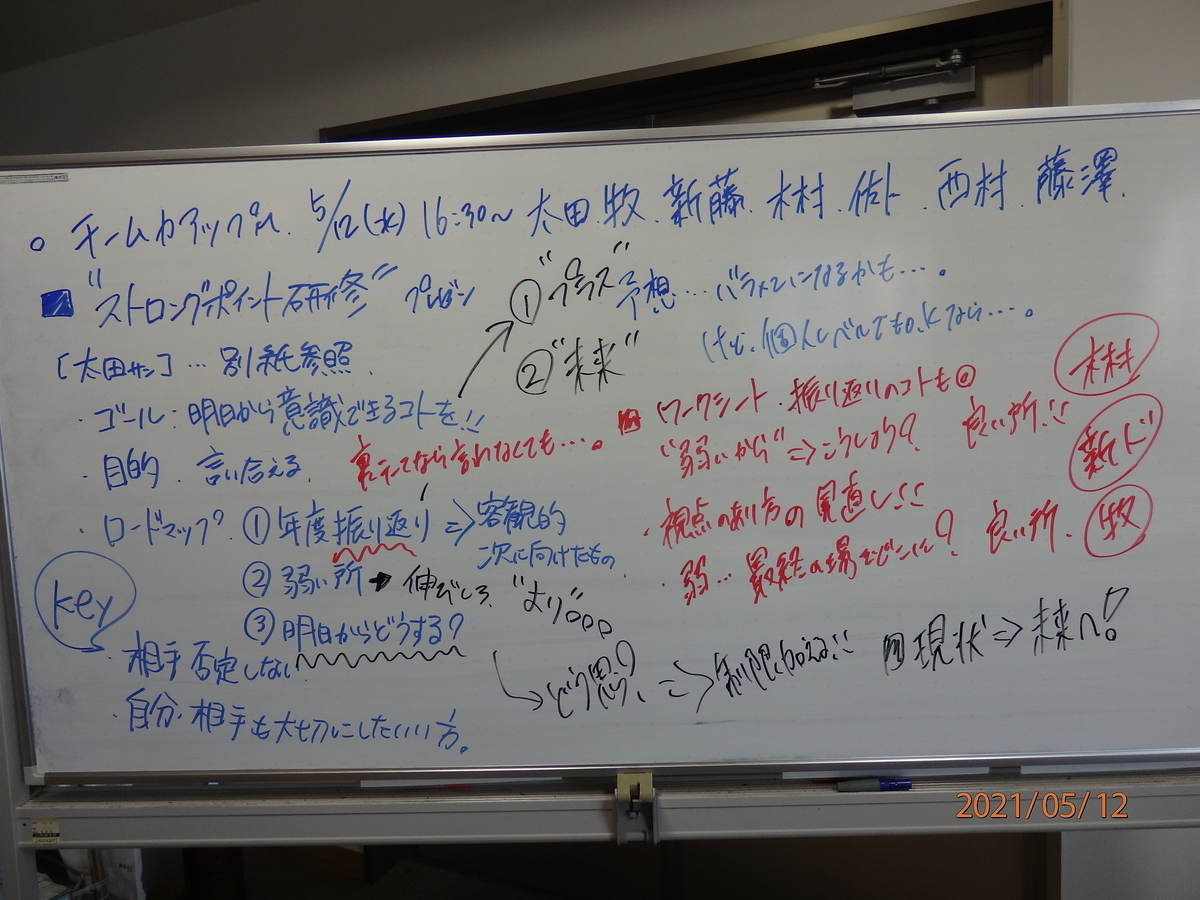 ○ チームカアップMt. 5/12(水) 16:30〜 太田. 牧. 新藤. 木村. 佐ト. 西村. 藤澤.
■ "ストロングポイント研修" プレゼン
[太田サン]… 別紙参照.
・ゴール：明日から意識できるコトを!!
・目的. 言い合える.
・ロードマップ. ① 年度振り返り ⇒ 客観的
次に向けたもの.
② 弱い所 → 伸びしろ. "より"
③ 明日からどうする?
key
・相手否定しない
・自分. 相手も大切にしたいい方.
① "プラス" 予想… バラバラになるかも….
② "未来"
けど、個人レベルでもO.Kなら….
ワークシート. 振り返りのコトも◎
木村
"弱いから" ⇒ こうしよう? 良い所!!
新ド
・視点のあり方の見直し!!
・弱… 最終の場をどこに? 良い所. 牧
どう思う? ⇒ 制限加える!!
現状 ⇒ 未来へ!
2021/05/12